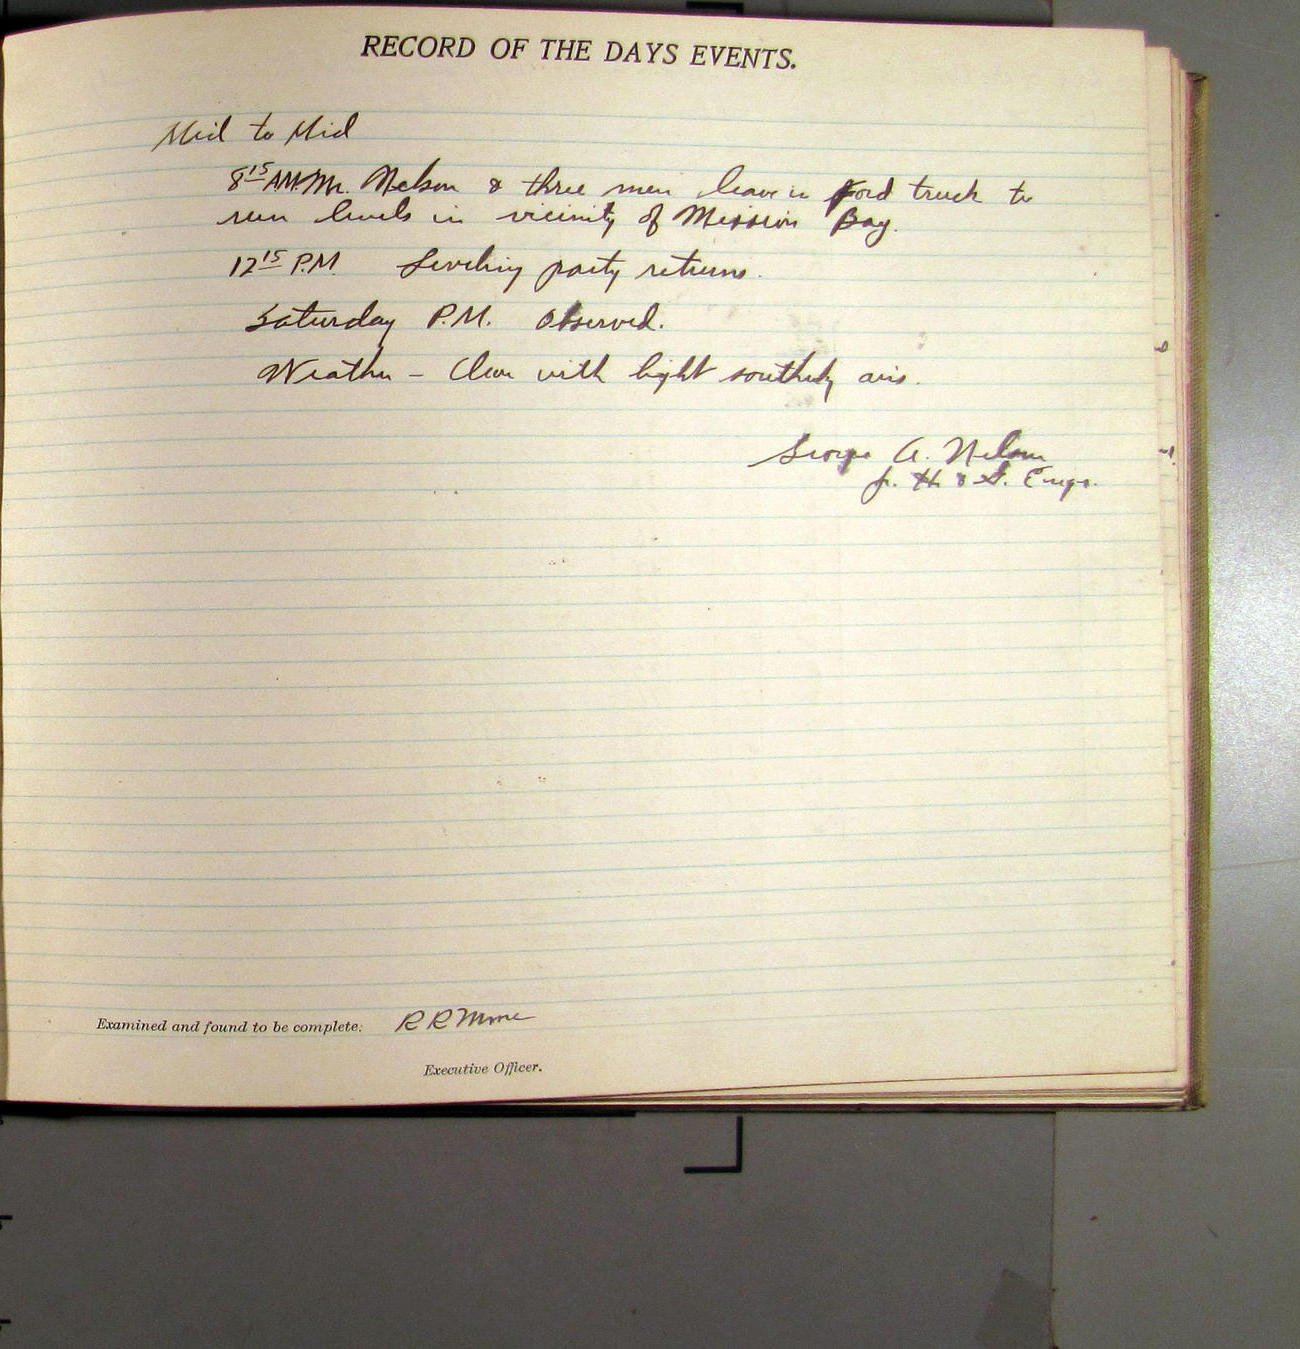 RECORD OF THE DAYS EVENTS.
Mid to Mid
8 15 A.M. Mr. Nelson & three men leave in Ford truck to
run levels in vicinity of Mission Bay.
12 15 P.M. Leveling party returns.
Saturday P.M. Observed.
Weather – Clear with light southerly airs.
George A. Nelson
Jr. H. & G. Engr.
Examined and found to be complete: R R Moore
Executive Officer.